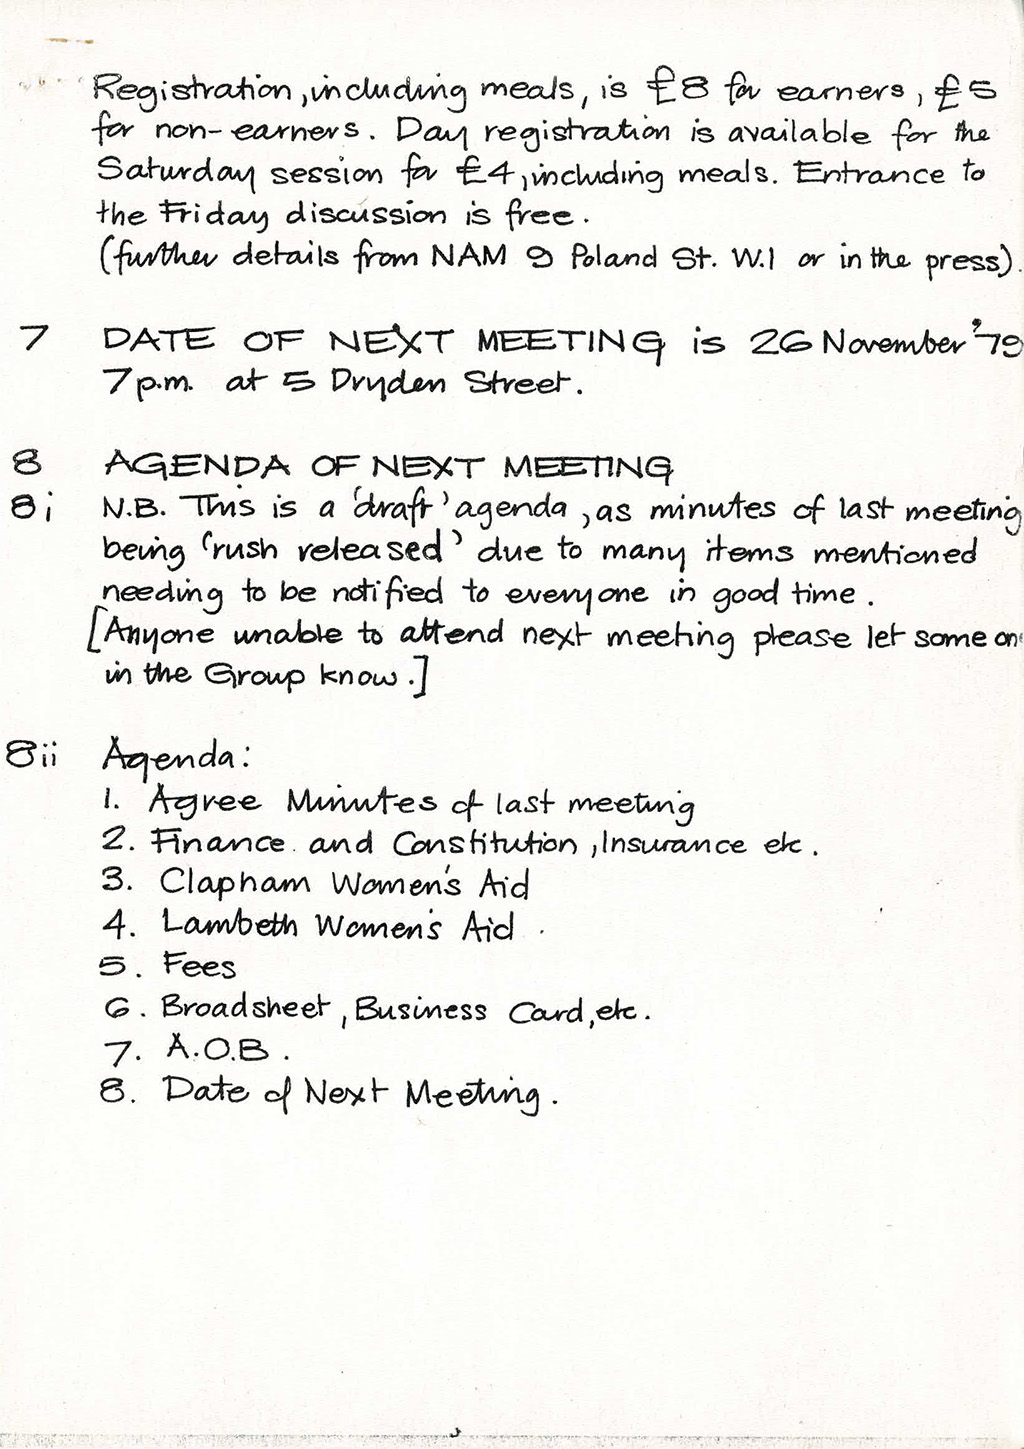 Registration, including meals, is £8 for earners, £5
for non-earners. Day registration is available for the
Saturday session for £4, including meals. Entrance to
the Friday discussion is free.
(further details from NAM 9 Poland St. W.1 or in the press).
7 DATE OF NEXT MEETING is 26 November '79
7p.m. at 5 Dryden Street.
8 AGENDA OF NEXT MEETING
8i N.B. This is a 'draft' agenda, as minutes of last meeting
being 'rush released' due to many items mentioned
needing to be notified to everyone in good time.
[Anyone unable to attend next meeting please let some one
in the Group know.]
8ii Agenda:
1. Agree Minutes of last meeting
2. Finance and Constitution, Insurance etc.
3. Clapham Women's Aid
4. Lambeth Women's Aid
5. Fees
6. Broadsheet, Business Card, etc.
7. A.O.B.
8. Date of Next Meeting.